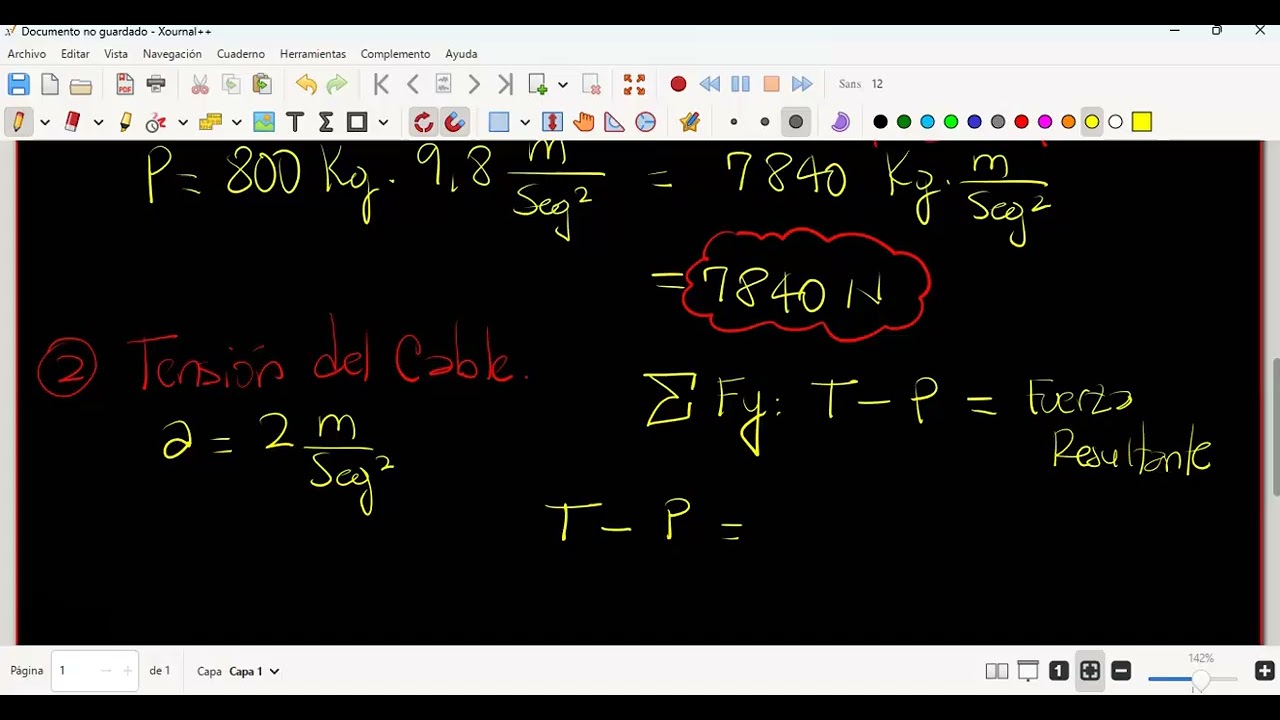 Documento no guardado - Xournal++
Archivo Editar Vista Navegación Cuaderno Herramientas Complemento Ayuda
Sans 12
P = 800 Kg . 9,8 m/Seg² = 7840 Kg . m/Seg²
= 7840 N
② Tensión del Cable.
∑ Fy: T - P = Fuerza
Resultante
a = 2 m/Seg²
T - P =
Página 1 de 1 Capa Capa 1 142%